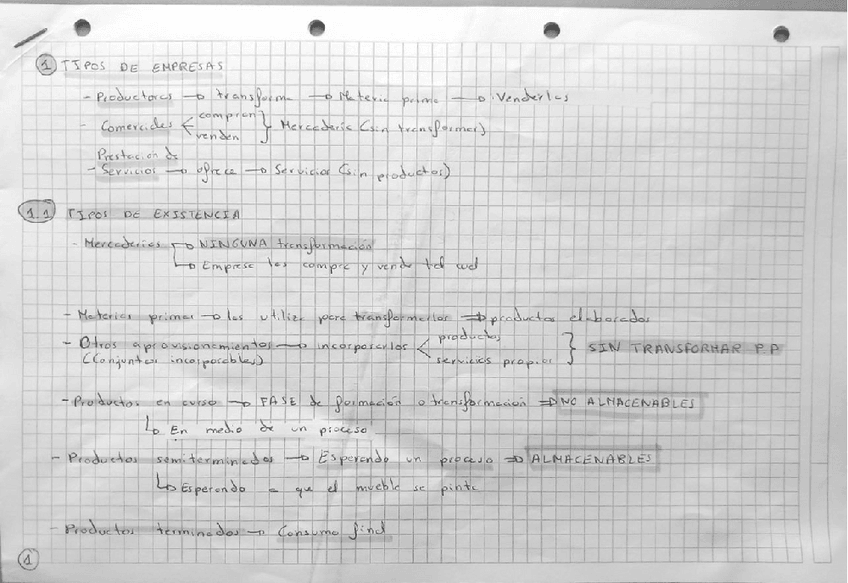 1 TIPOS DE EMPRESAS
- Productores → transforma → Materia prima → Venderlas
- Comerciales < compran venden } Mercadería (sin transformar)
Prestación de
- Servicios → ofrece → Servicios (sin productos)
1.1 TIPOS DE EXISTENCIA
- Mercaderías → NINGUNA transformación
→ Empresa las compra y vende tal cual
- Materias primas → las utiliza para transformarlos ⇒ productos elaborados
- Otros aprovisionamientos → incorporarlos < productos servicios propios } SIN TRANSFORMAR P.P
(Conjuntos incorporables)
- Productos en curso → FASE de formación o transformación ⇒ NO ALMACENABLES
↳ En medio de un proceso
- Productos semiterminados → Esperando un proceso ⇒ ALMACENABLES
↳ Esperando a que el mueble se pinte
- Productos terminados → Consumo final
1